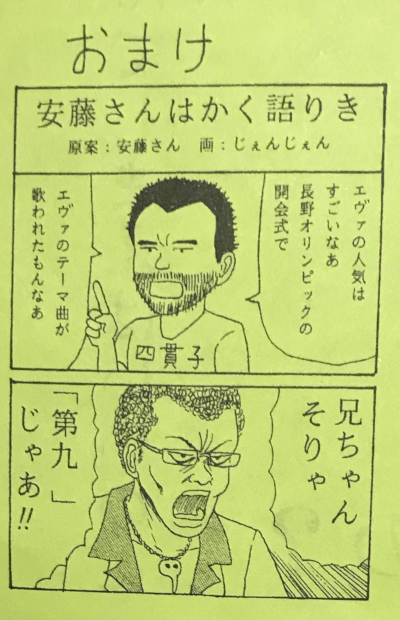 おまけ
安藤さんはかく語りき
原案：安藤さん 画：じぇんじぇん
エヴァの人気は
すごいなあ
長野オリンピックの
開会式で
エヴァのテーマ曲が
歌われたもんなあ
四貫子
兄ちゃん
そりゃ
「第九」
じゃあ!!